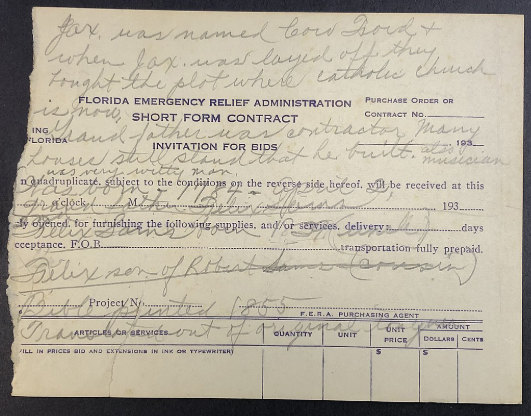 Jax. was named Cow Ford &
when Jax. was layed off they
bought the plot where catholic church
is now.
FLORIDA EMERGENCY RELIEF ADMINISTRATION
PURCHASE ORDER OR
CONTRACT No.
SHORT FORM CONTRACT
Grand father was contractor many
ING
FLORIDA
INVITATION FOR BIDS
193
houses still stand that he built. also
musician
was very witty man.
n quadruplicate, subject to the conditions on the reverse side hereof, will be received at this
o'clock M. 193
ly opened, for furnishing the following supplies, and/or services, delivery: days
Felix born
cceptance. F.O.B. transportation fully prepaid.
Felix son of Robert (cousin)
Project No.
Bible printed 1855
F.E.R.A. PURCHASING AGENT
out of original
ARTICLES OR SERVICES QUANTITY UNIT UNIT PRICE AMOUNT
DOLLARS CENTS
FILL IN PRICES BID AND EXTENSIONS IN INK OR TYPEWRITER) $ $